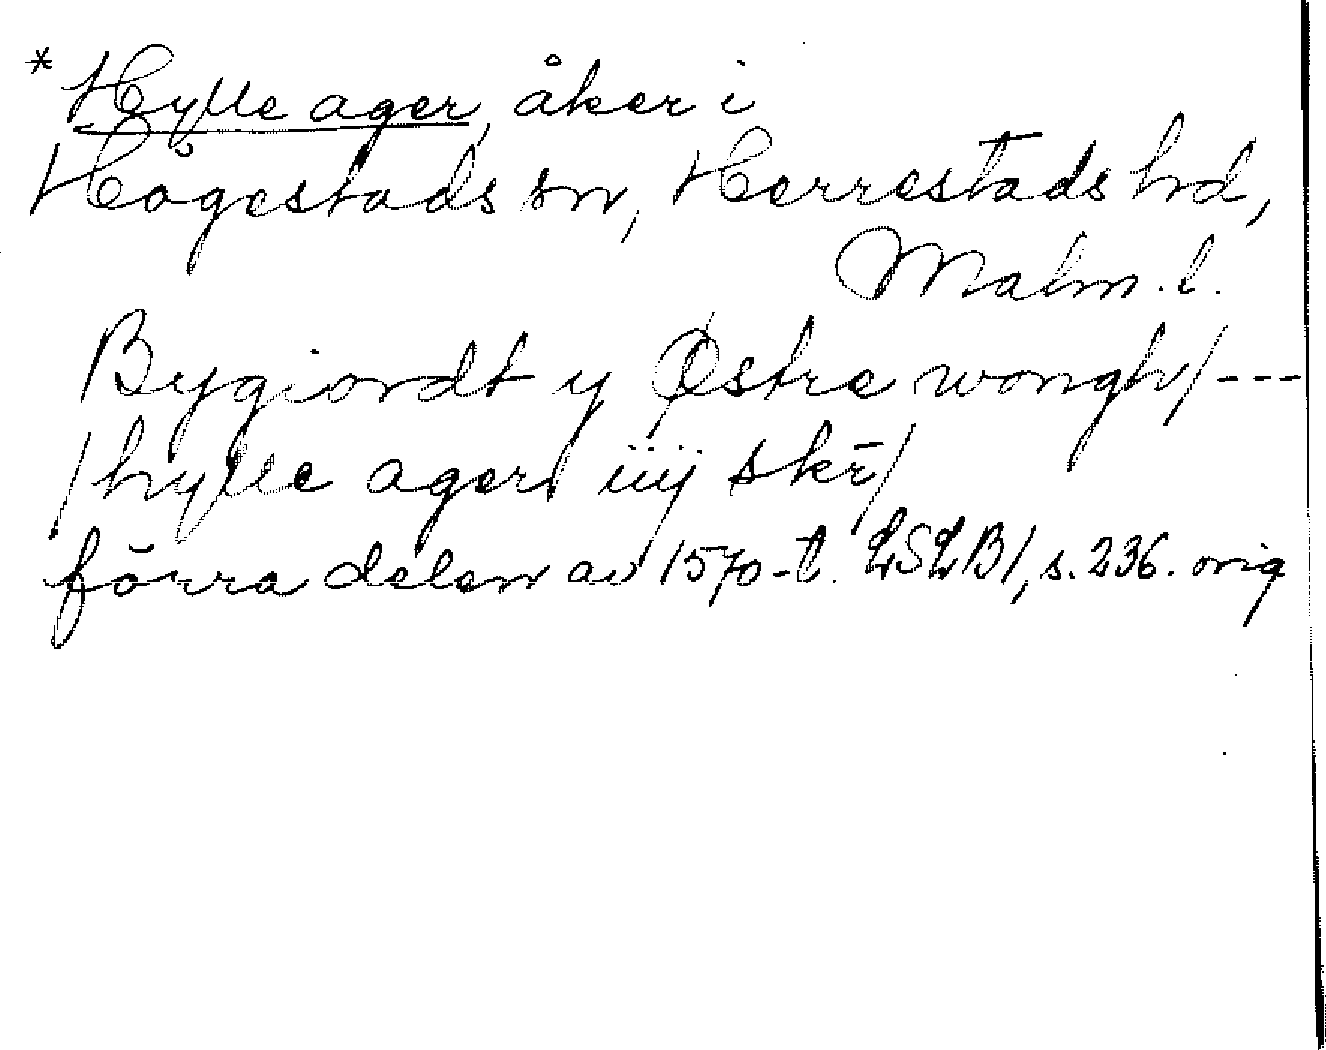 * Hylle ager, åker i
Högestads sn, Herrestads hd,
Malm. l.
Bygiordt y Østre wongh/ ---
/hylle ager iiij skē/
förra delen av 1570-t. LSLB1, s. 236. orig